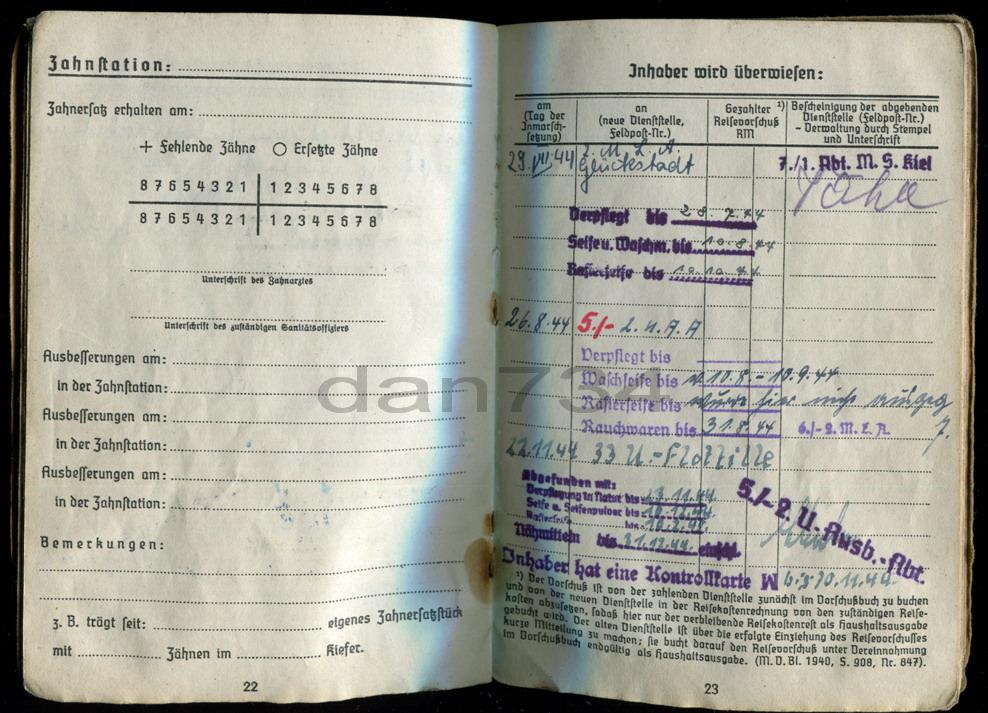 Zahnstation:
Zahnersatz erhalten am:
+ Fehlende Zähne O Ersetzte Zähne
8 7 6 5 4 3 2 1 1 2 3 4 5 6 7 8
8 7 6 5 4 3 2 1 1 2 3 4 5 6 7 8
Unterschrift des Zahnarztes
Unterschrift des zuständigen Sanitätsoffiziers
Ausbesserungen am:
in der Zahnstation:
Ausbesserungen am:
in der Zahnstation:
Ausbesserungen am:
in der Zahnstation:
Bemerkungen:
z. B. trägt seit: eigenes Zahnersatzstück
mit Zähnen im Kiefer.
22
dan734
Inhaber wird überwiesen:
am
(Tag der
Inmarsch-
setzung)
an
(neue Dienststelle,
Feldpost-Nr.)
Gezahlter ¹)
Reisevorschuß
RM
Bescheinigung der abgebenden
Dienststelle (Feldpost-Nr.)
- Verwaltung durch Stempel
und Unterschrift
29.VII.44 2. M. L. A.
Glückstadt
7./1. Abt. M. S. Kiel
Verpflegt bis 28.7.44
Seife u. Waschm. bis 10.8.44
Rasierseife bis 10.10.44
26.8.44 5./- 2. U. A. A
Verpflegt bis
Waschseife bis v. 10.8. - 10.9.44
Rasierseife bis wurde hier nicht ausgeg
Rauchwaren bis 31.8.44 6./-2. M. L. A.
22.11.44 33 U.-Flottille
Abgefunden mit:
Verpflegung in Natur bis
Seife u. Seifenpulver bis
Rasierseife bis
Nähmitteln bis 31.12.44. einschl.
5./-2. U. Ausb.-Abt.
Inhaber hat eine Kontrollkarte W
¹) Der Vorschuß ist von der zahlenden Dienststelle zunächst im Vorschußbuch zu buchen
und von der neuen Dienststelle in der Reisekostenrechnung von den zuständigen Reise-
kosten abzusetzen, sodaß hier nur der verbleibende Reisekostenrest als Haushaltsausgabe
gebucht wird. Der alten Dienststelle ist über die erfolgte Einziehung des Reisevorschusses
kurze Mitteilung zu machen; sie bucht darauf den Reisevorschuß unter Vereinnahmung
im Vorschußbuch endgültig als Haushaltsausgabe. (M. D. Bl. 1940, S. 908, Nr. 847).
23